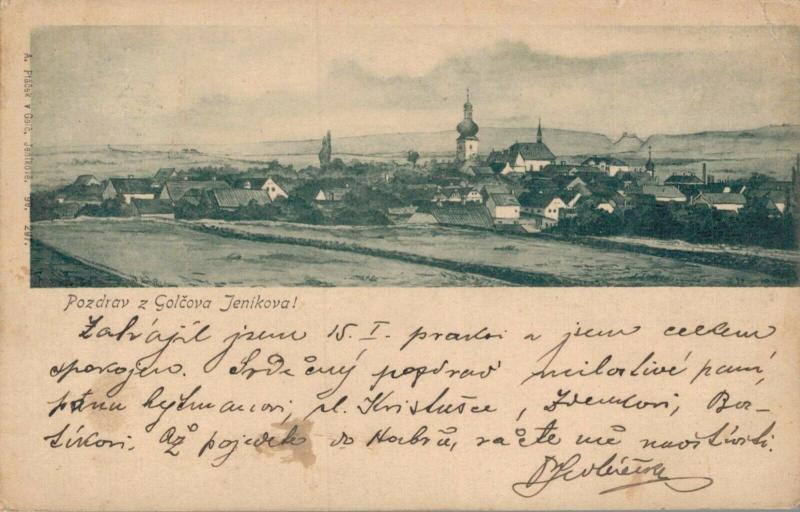 A. Ptáček v Golč. Jeníkově. 98. 297.
Pozdrav z Golčova Jeníkova!
Zahájil jsem 15. I. praxi a jsem celkem
spokojen. Srdečný pozdrav milostivé paní,
pánu hejtmanovi, sl. Kristušce, Zdenkovi, Bos-
tíkovi. Až pojedete do Habrů, račte mě navštíviti.